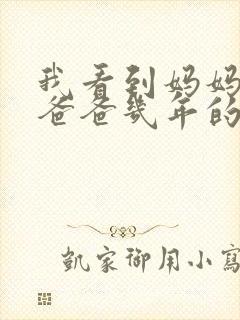 我看到妈妈
爸爸几年的
凯家御用小写